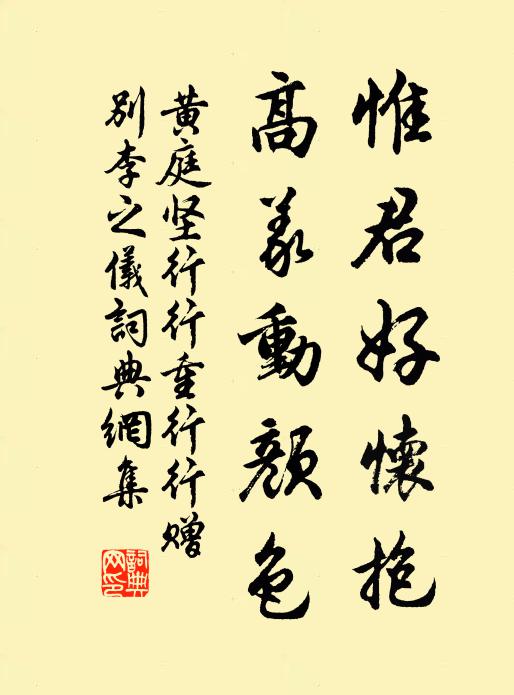 惟君好懷抱
高義動顏色
黄庭坚行行重行行赠
别李之儀詞典網集
詞典網印